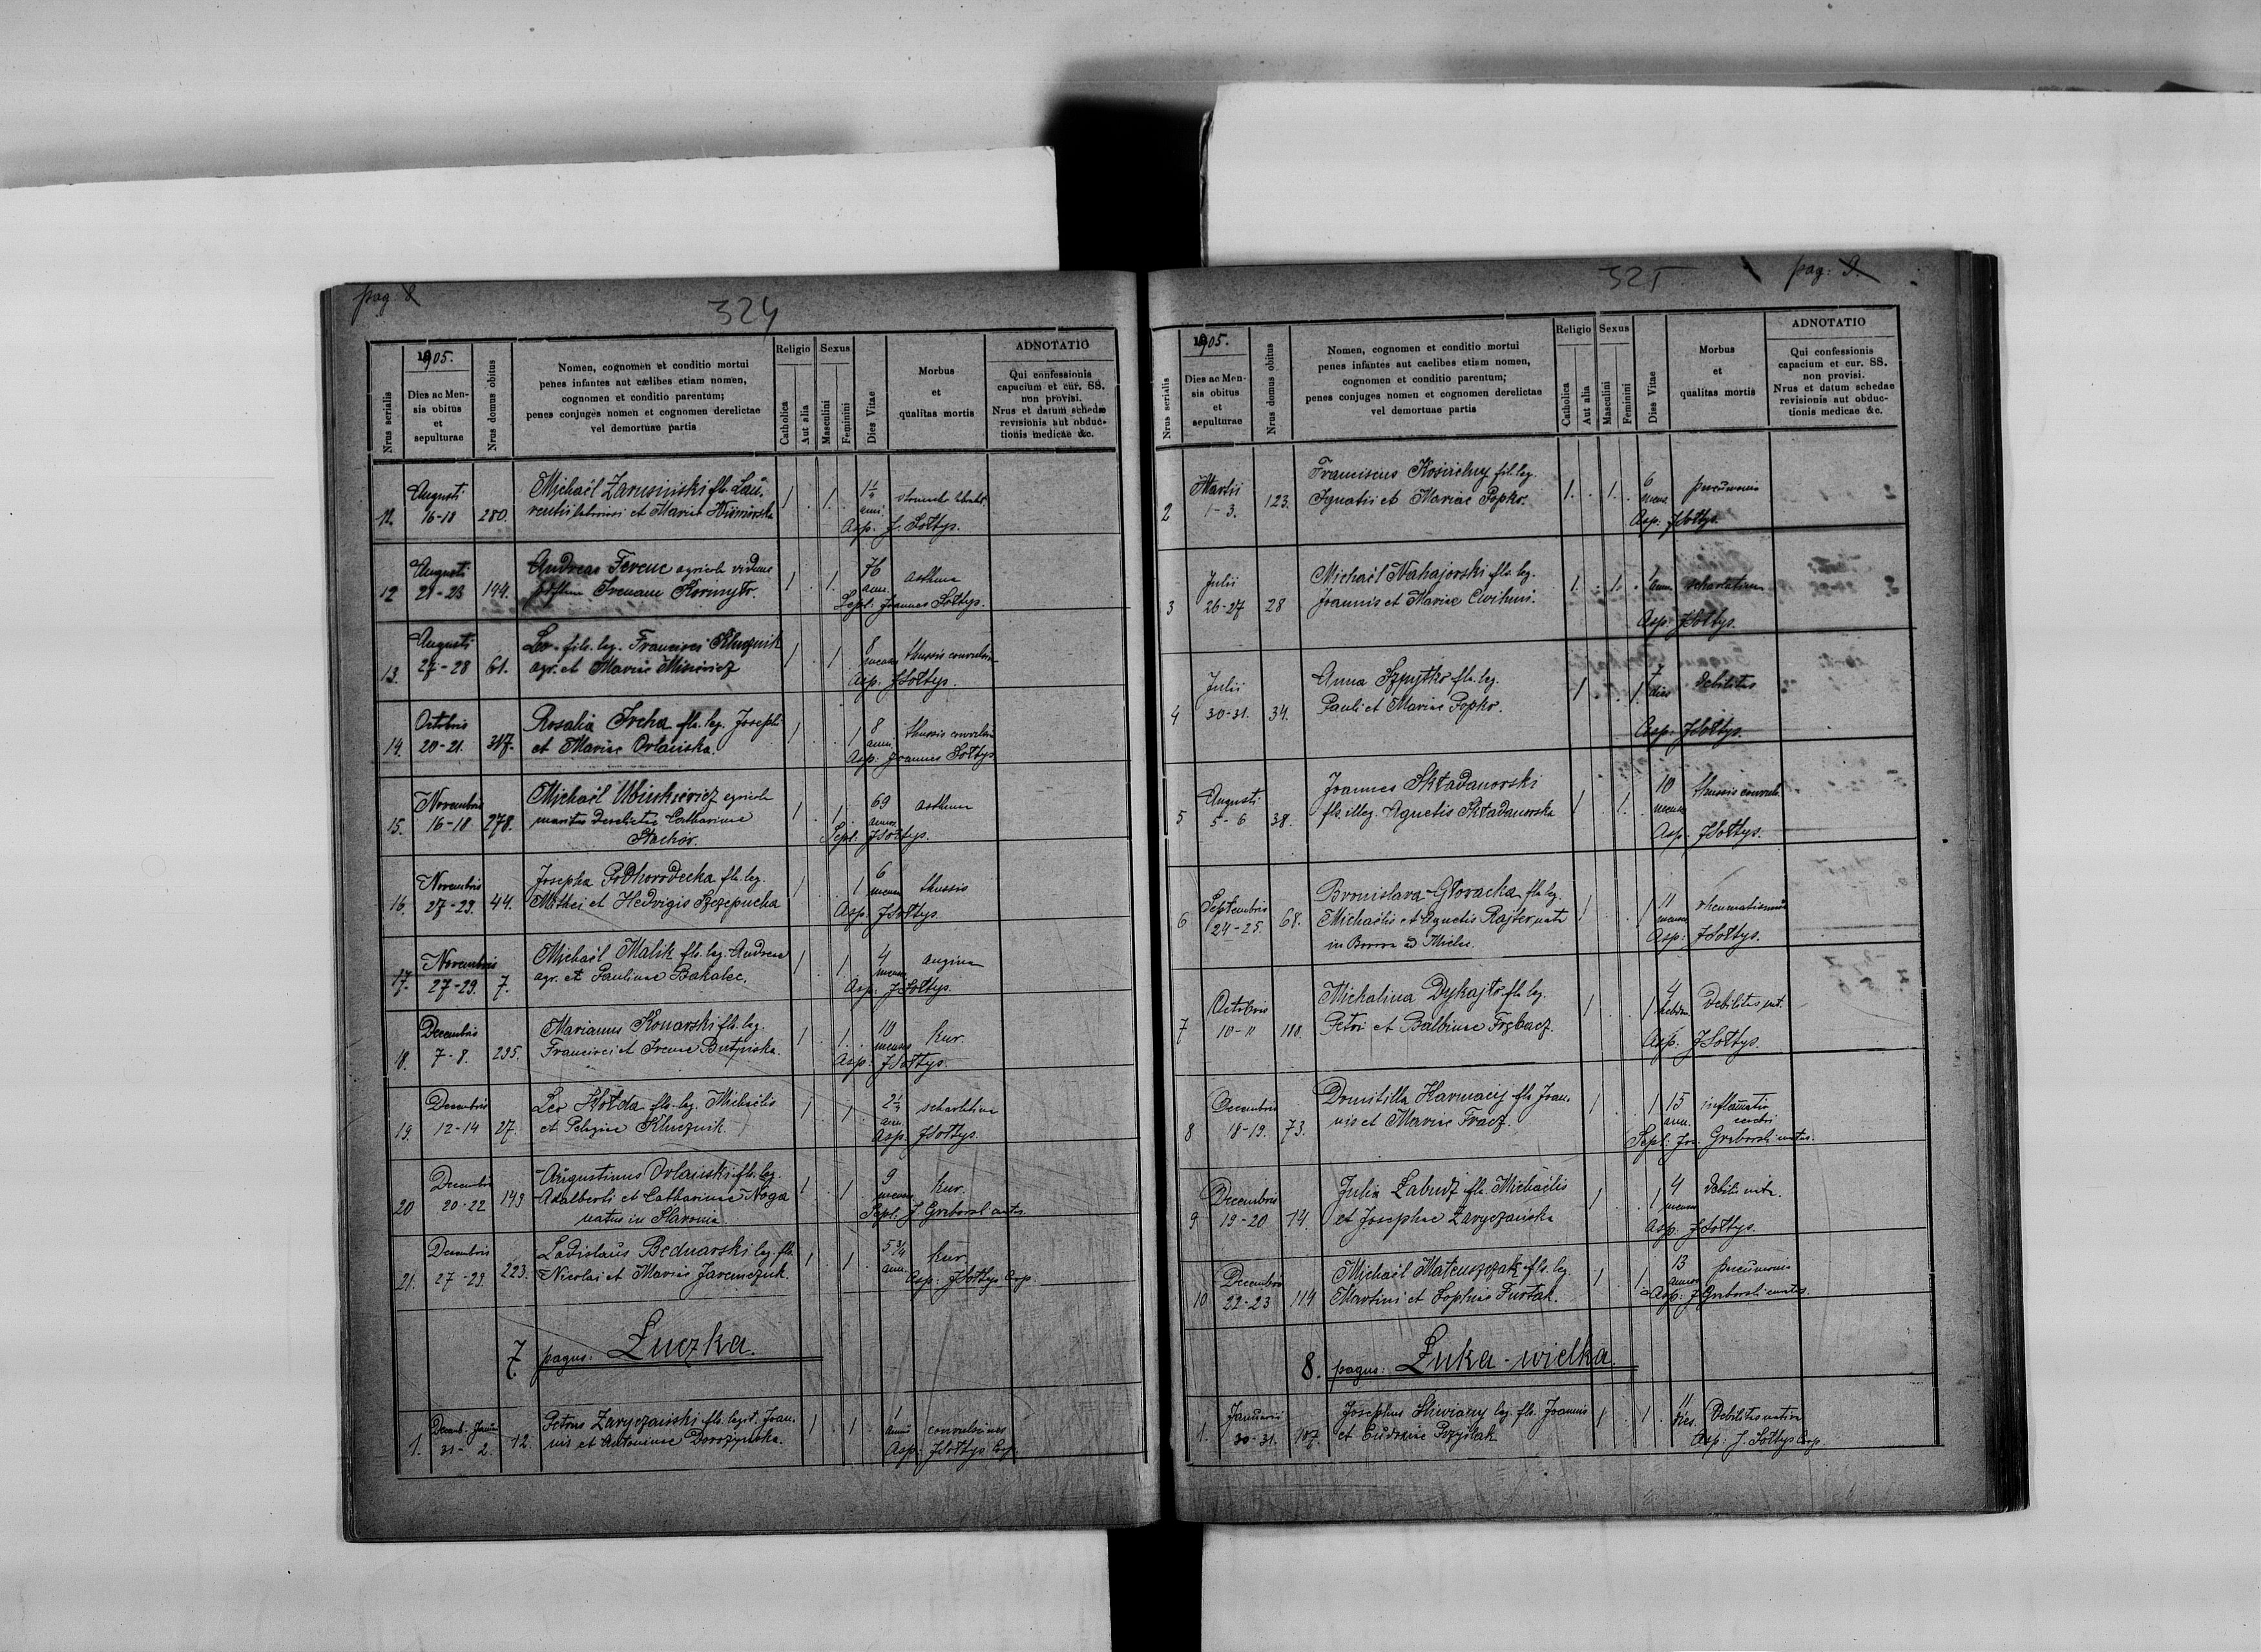 pag: 8
324
1905.
Nrus serialis
Dies ac Men-
sis obitus
et
sepulturae
Nrus domus obitus
Nomen, cognomen et conditio mortui
penes infantes aut cælibes etiam nomen,
cognomen et conditio parentum;
penes conjuges nomen et cognomen derelictae
vel demortuae partis
Religio
Catholica
Aut alia
Sexus
Masculini
Feminini
Dies Vitae
Morbus
et
qualitas mortis
ADNOTATIO
Qui confessionis
capacium et cur. SS.
non provisi.
Nrus et datum schedæ
revisionis aut obduc-
tionis medicae &c.
Augusti
16-18 280.
Michaël Zarusiński fls. Lau-
rentii et Mariae
1 1. 1½ anni
Asp. J. Sołtys.
12 Augusti
21-23 144.
Andreas Ferenc agricola viduus
1 1. 76 ann. asthma
Sepl. Joannes Sołtys.
13. Augusti
27-28 61.
Leo fils. leg. Francisci Klucznik
agr. et Mariae Misiewicz
1 1 8 menses thussis convulsiva
Asp. J Sołtys.
14. Octobris
20-21. 317.
Rosalia Ircha fla. leg. Josephi
et Mariae Orlańska.
1 1 8 ann. thussis convulsiva
Asp: Joannes Sołtys
15. Novembris
16-18 278.
Michaël agricola
maritus derelictae Catharinae
Stachów.
1 1. 69 annos asthma
Sepl: J Sołtys.
16. Novembris
27-29. 44.
Josepha Podhorodecka fla. leg.
Mathei et Hedvigis Szczepucha
1 1 6 menses thussis
Asp. J Sołtys.
17. Novembris
27-29. 7.
Michaël Malik fls. leg. Andreae
agr. et Paulinae Bakalec.
1 1. 4 menses angina
Asp: J Sołtys.
18. Decembris
7-8. 295.
Marianus Konarski fls. leg.
Francisci et Irenae
1 1. 10 menses kur.
Asp: J Sołtys.
19. Decembris
12-14 27.
Leo Hołda fls. leg. Michaëlis
et Pelagiae Klucznik.
1 1 2½ ann. scharlatina
Asp. J Sołtys.
20 Decembris
20-22 149
Augustinus Orlański fls. leg.
Adalberti et Catharinae Noga
natus in Slavonia.
1 1 9 menses kur.
Sepl. J
21. Decembris
27-29. 223.
Ladislaus Bednarski leg. fls.
Nicolai et Mariae Jaremczuk.
1 1 5¾ ann. kur.
Asp: J Sołtys Coop.
7. pagus: Łuczka.
1. Decemb. Januar
31-2. 12.
Petrus Zaryczański fls. legit. Joan-
nis et Antoninae
1 1 1 annus convulsiones
Asp: J Sołtys Coop.
325
pag: 9.
1905.
Nrus serialis
Dies ac Men-
sis obitus
et
sepulturae
Nrus domus obitus
Nomen, cognomen et conditio mortui
penes infantes aut caelibes etiam nomen,
cognomen et conditio parentum;
penes conjuges nomen et cognomen derelictae
vel demortuae partis
Religio
Catholica
Aut alia
Sexus
Masculini
Feminini
Dies Vitae
Morbus
et
qualitas mortis
ADNOTATIO
Qui confessionis
capacium et cur. SS.
non provisi.
Nrus et datum schedae
revisionis aut obduc-
tionis medicae &c.
2 Martii
1-3. 123.
Franciscus Kościelny fil. leg.
Ignatii et Mariae Popko.
1. 1. 6 mens pneumonia
Asp: J Sołtys.
3 Julii
26-27 28
Michaël Nahajorski fls. leg.
Joannis et Mariae
1. 1. 1 ann. scharlatina
Asp: J Sołtys.
4 Julii
30-31. 34.
Anna Szpytko fla. leg.
Pauli et Mariae Popko.
1 1. 7 dies debilitas
Asp: J Sołtys.
5 Augusti
5-6 38.
Joannes Składanowski
fls. illeg. Agnetis Składanowska
1 1. 10 menses thussis convuls.
Asp: J Sołtys.
6 Septembris
24-25. 68.
Bronislava Głowacka fla. leg.
Michaëlis et Agnetis nata
in
1 1 11 menses rheumatismus
Asp: J Sołtys.
7 Octobris
10-11 180.
Michalina Dykajło fla. leg.
Petri et Balbinae Trębacz.
1 1 4 hebdom. debilitas nat.
Asp: J Sołtys.
8 Decembris
18-19. 73.
Domitilla Harmacij fla Joan-
nis et Mariae Tracz.
1 1 15 ann. inflamatio
cerebri
Sepl: Jos:
9 Decembris
19-20 14.
Julia Łabudz fla. Michaëlis
et Josephae Zaryczańska
1 1 4 menses
Asp. J Sołtys.
10 Decembris
22-23 114
Michaël Mateuszczak fls. leg.
Martini et Sophiae Furtak.
1 1 13 annos pneumonia
Asp: J
8. pagus: Łuka-wielka.
1. Januarii
30-31. 107.
Josephus leg. fls. Joannis
et Eudoxiae
1 1. 11 dies. Debilitas nativa
Asp: J. Sołtys Coop.